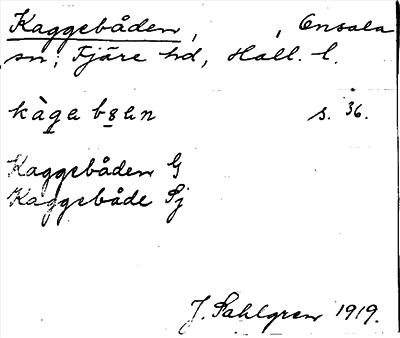 Kaggebåden, , Onsala
sn; Fjäre hd, Hall. l.
s. 36.
Kaggebåden G
Kaggebåde Sj
J. Sahlgren 1919.